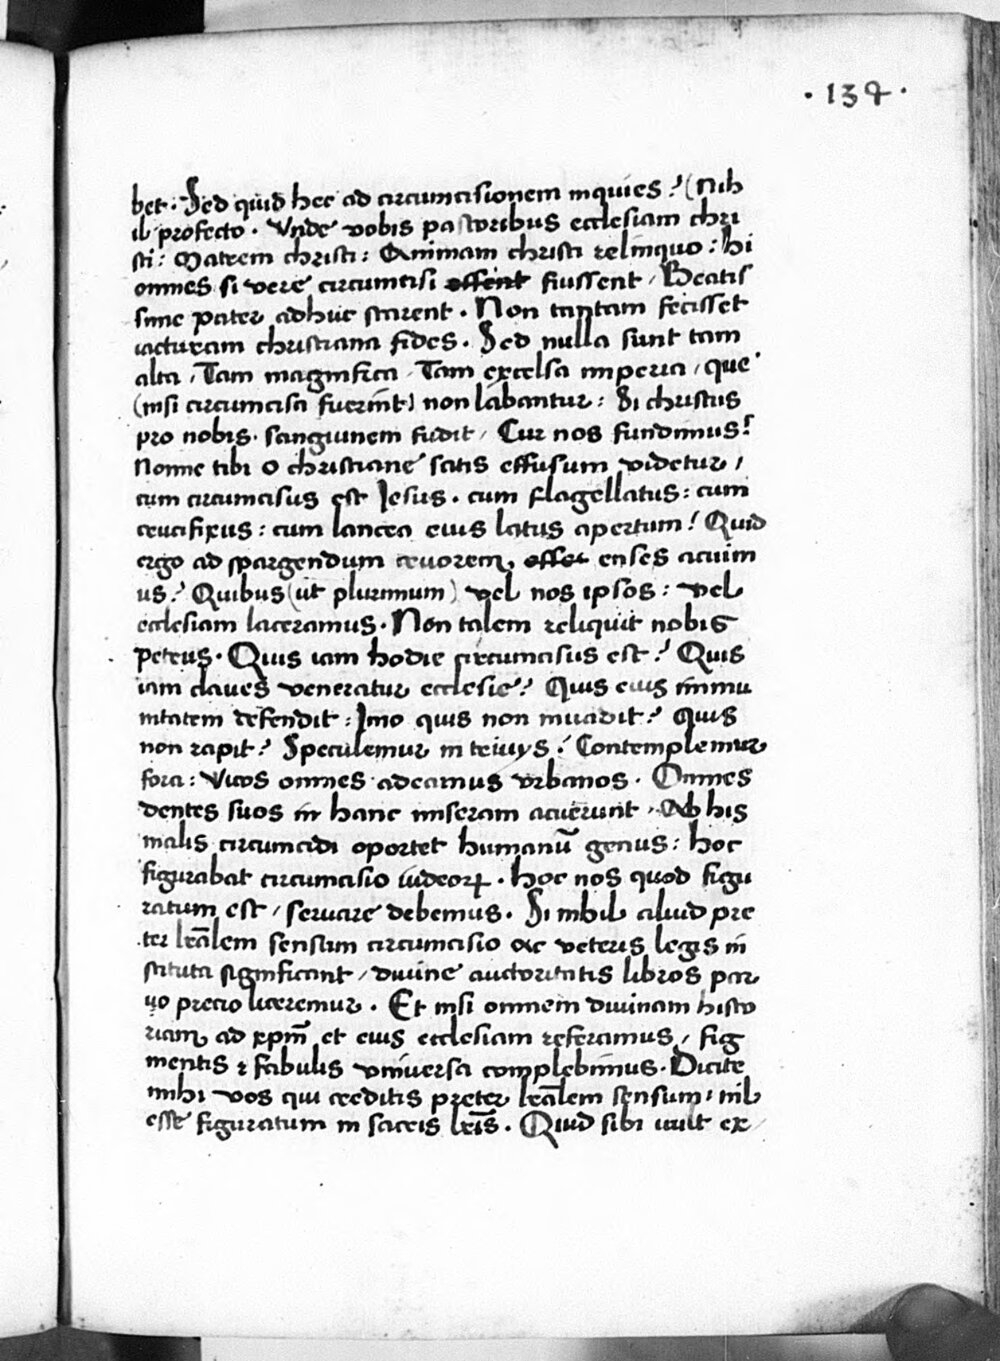 · 134 ·
bet · Sed quid hec ad circumcisionem inquies? (Nih
il profecto · Vnde vobis pastoribus ecclesiam chri
sti: Matrem christi: Animam christi relinquo: hi
omnes si vere circumcisi essent fuissent / Beatis
sime pater adhuc starent · Non tantam fecisset
iacturam christiana fides · Sed nulla sunt tam
alta / Tam magnifica / Tam excelsa imperia / que
(nisi circumcisa fuerint) non labantur: Si christus
pro nobis · sanguinem fudit / Cur nos fundimus?
Nonne tibi o christiane satis effusum videtur /
cum circumcisus est Jesus · cum flagellatus: cum
crucifixus: cum lancea eius latus apertum! Quid
ergo ad spargendum cruorem, esset enses acuim
us? Quibus (ut plurimum) vel nos ipsos: vel
ecclesiam laceramus · Non talem reliquit nobis
Petrus · Quis iam hodie circumcisus est? Quis
iam claues veneratur ecclesie? Quis eius immu
nitatem defendit: Imo quis non inuadit? Quis
non rapit? Speculemur in Contemplemur
fora: Vicos omnes adeamus vrbanos · Omnes
dentes suos in hanc miseram acuerunt · Ab his
malis circumcidi oportet humanū genus: hoc
figurabat circumcisio iudeoꝝ · Hoc nos quod figu
ratum est / seruare debemus · Si nihil aliud pre
ter lr̄alem sensum circumcisio ac veteris legis in
stituta significant / diuine auctoritatis libros par
uo precio liceremur · Et nisi omnem diuinam histo
riam ad xpm̄ et eius ecclesiam referamus / fig
mentis ⁊ fabulis vniuersa complebimus · Dicite
mihi vos qui creditis preter lr̄alem sensum: nil
esse figuratum in sacris lr̄is · Quid sibi uult ex /